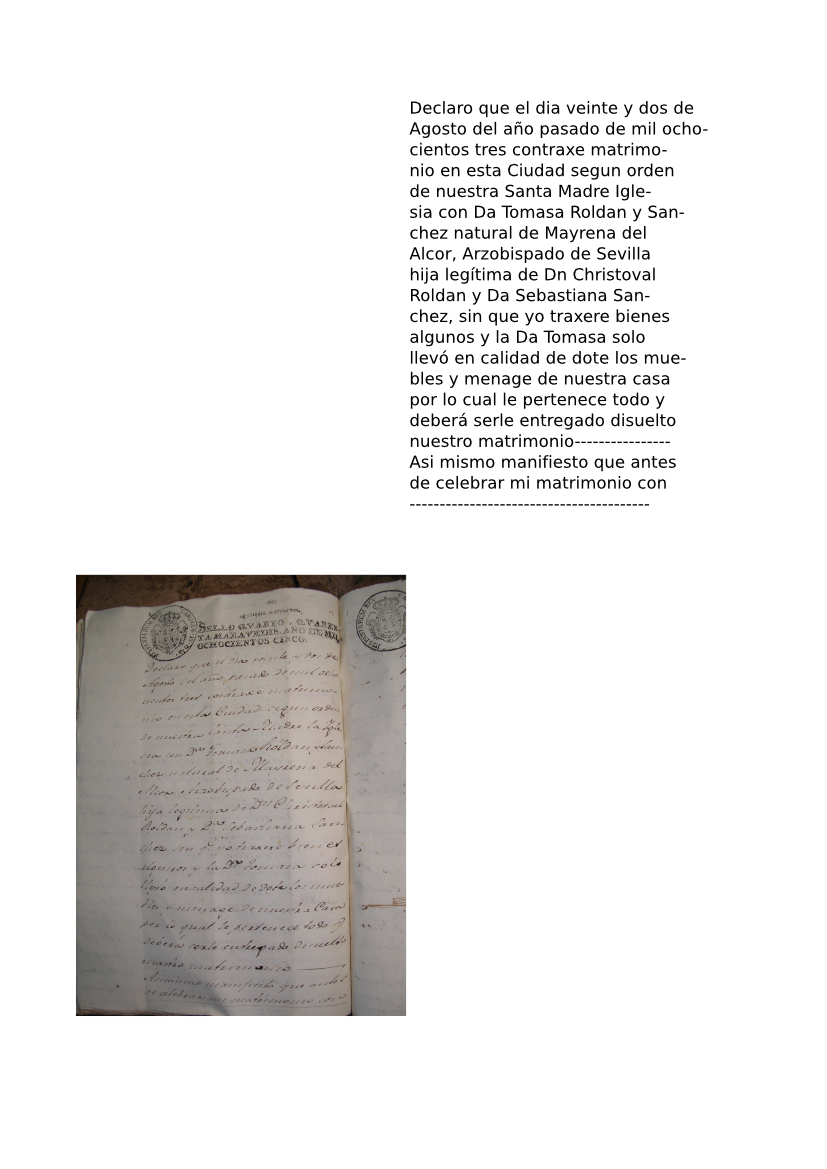 Declaro que el dia veinte y dos de
Agosto del año pasado de mil ocho-
cientos tres contraxe matrimo-
nio en esta Ciudad segun orden
de nuestra Santa Madre Igle-
sia con Da Tomasa Roldan y San-
chez natural de Mayrena del
Alcor, Arzobispado de Sevilla
hija legítima de Dn Christoval
Roldan y Da Sebastiana San-
chez, sin que yo traxere bienes
algunos y la Da Tomasa solo
llevó en calidad de dote los mue-
bles y menage de nuestra casa
por lo cual le pertenece todo y
deberá serle entregado disuelto
nuestro matrimonio----------------
Asi mismo manifiesto que antes
de celebrar mi matrimonio con
----------------------------------------
SELLO QVARTO, QVAREN
TA MARAVEDIS, AÑO DE MIL
OCHOCIENTOS CINCO.
Declaro que el Dia veinte y dos de
Agosto del año pasado de mil ocho
cientos tres contraxe matrimo-
nio en esta Ciudad segun orden
de nuestra Santa Madre la Igle
sia con Da. Tomasa Roldan y San
chez natural de Mayrena del
Alcor Arzobispado de Sevilla
hija legitima de Dn. Christoval
Roldan y Da. Sebastiana San-
chez sin q. yo traxere bienes
algunos y la Da. Tomasa solo
llevó en calidad de dote los mue
bles y menage de nuestra Casa
por lo qual le pertenece todo y
deberá serle entregado disuelto
nuestro matrimonio
Asimismo manifiesto que antes
de celebrar mi matrimonio con